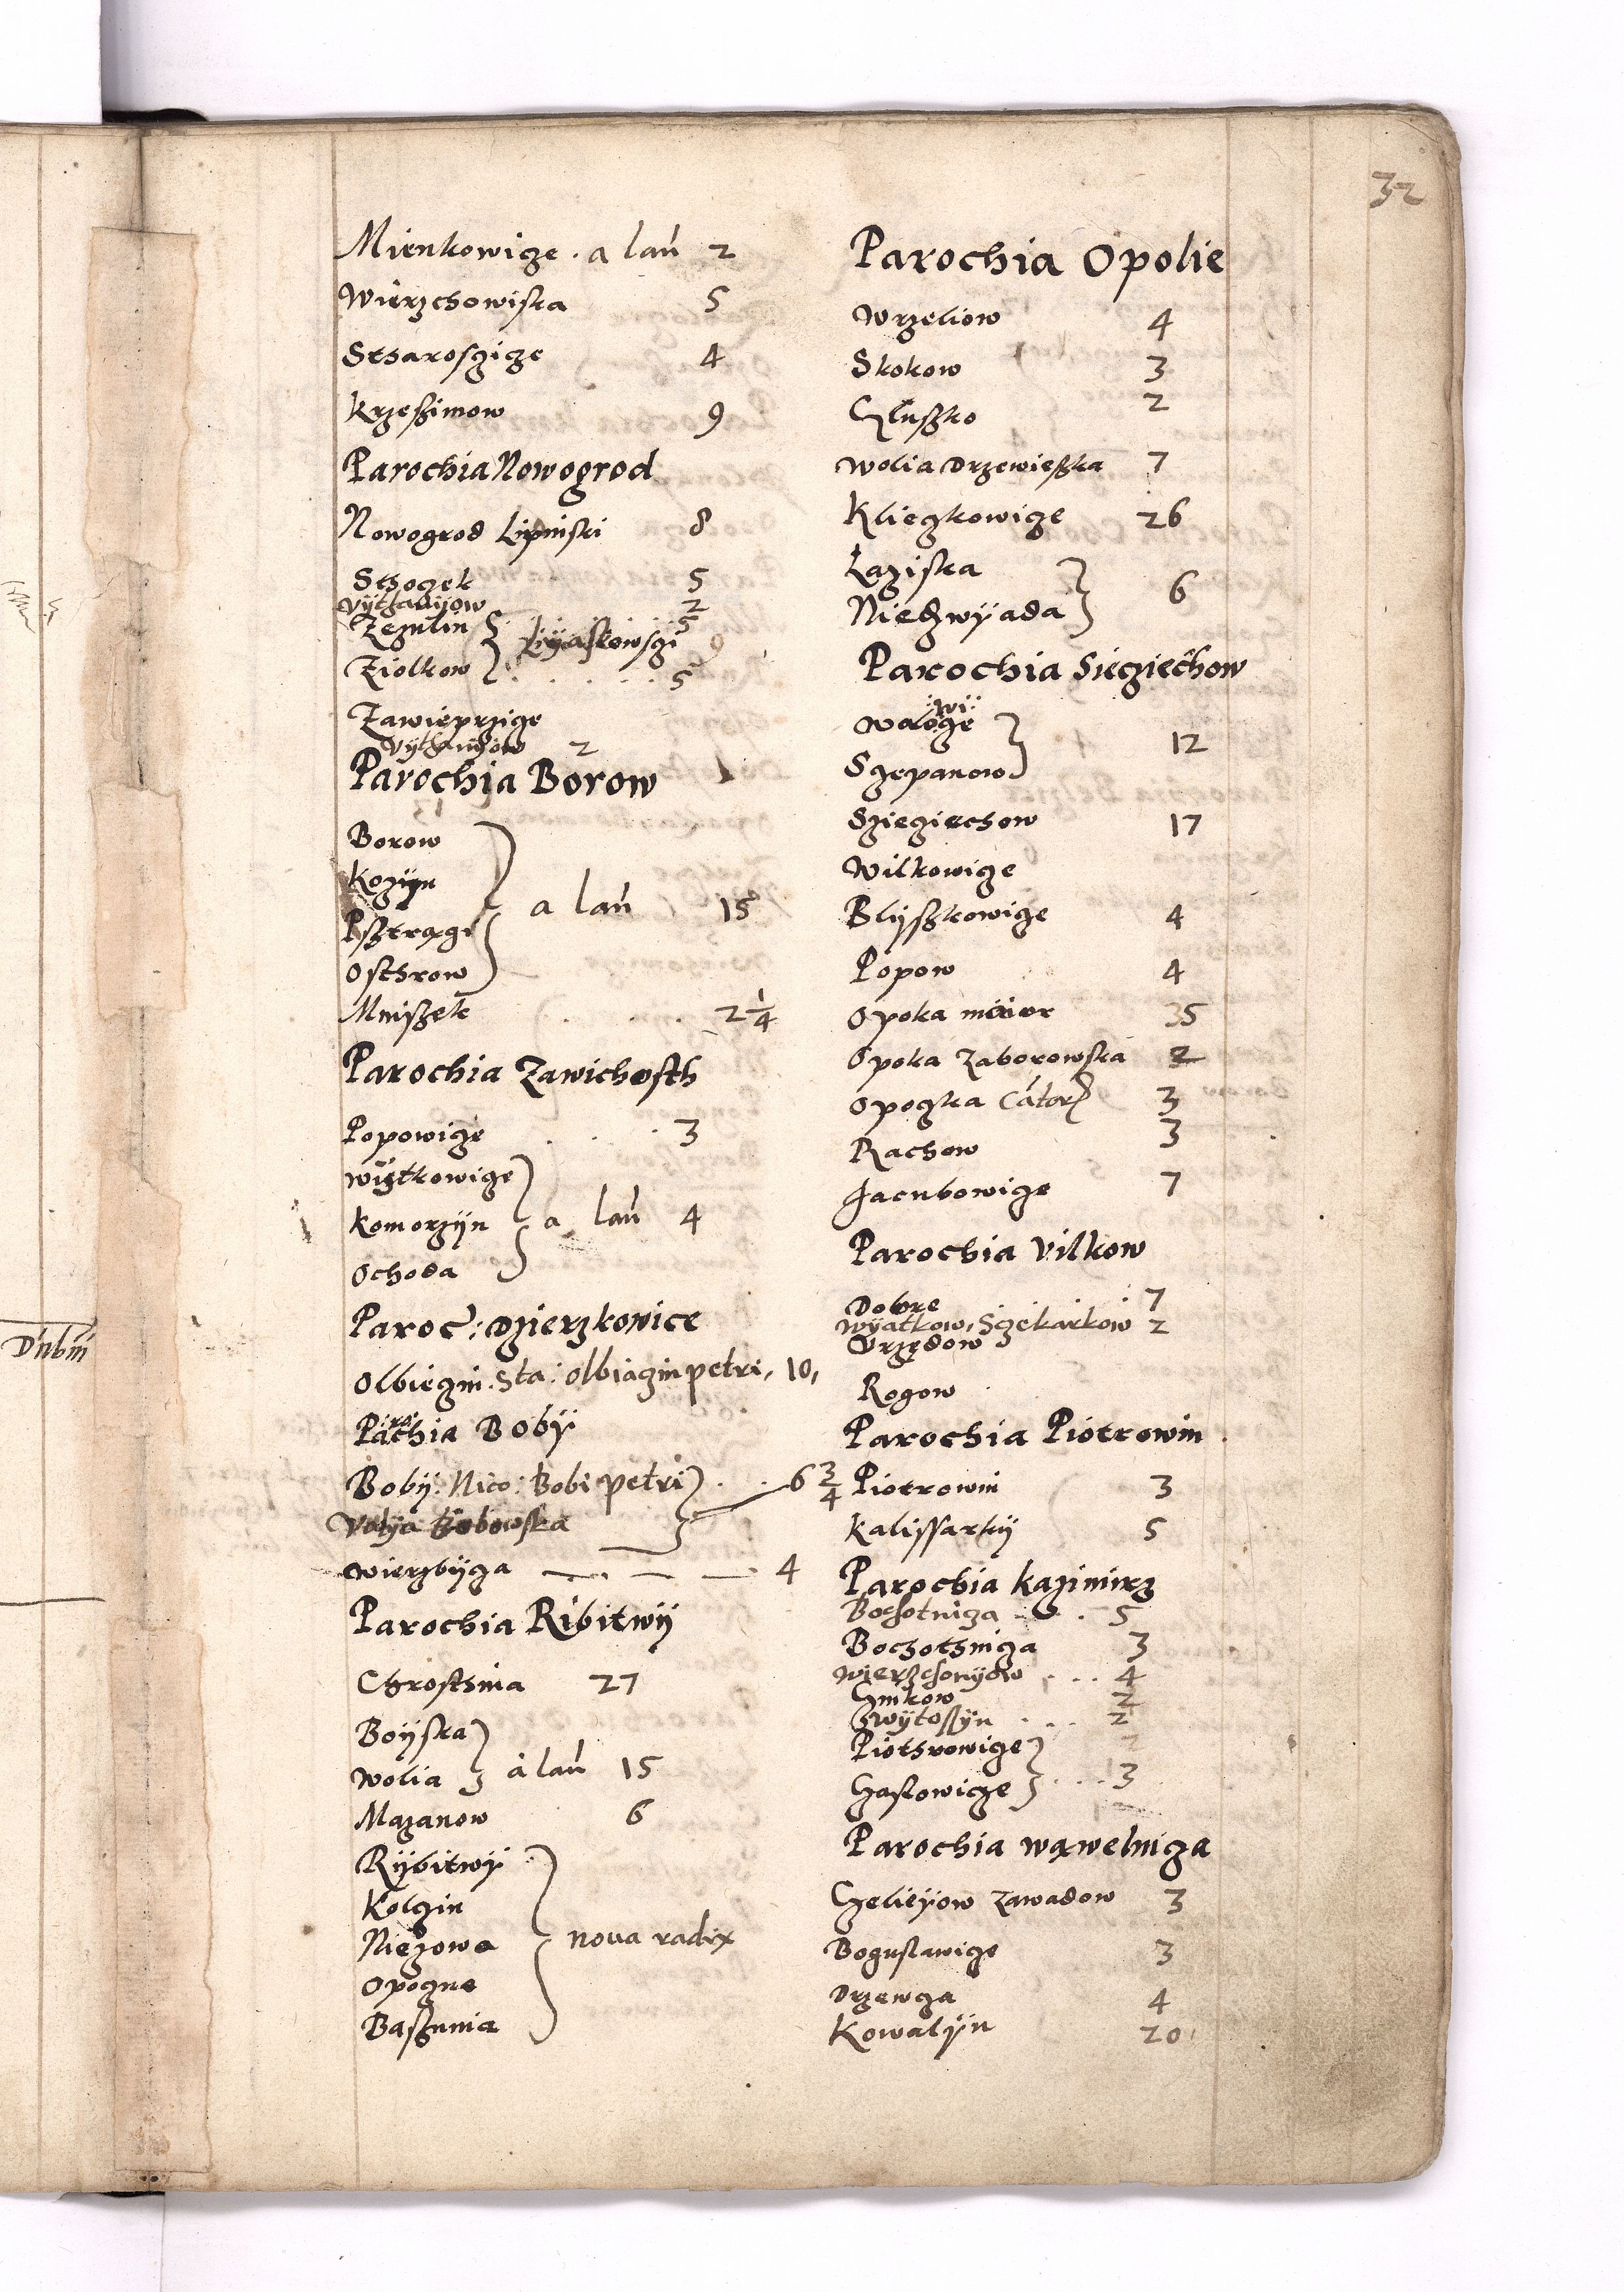 32
Mienkowicze . a lań 2
Wierzchowiska 5
Stharosczicze 4
Krzessimow 9
Parochia Nowogrod
Nowogrod Lipinski 8
Sthoczek 5
Vytharzyow 2
Zezulin 5
Liyaskowsczi 9
Ziolkow . . . . . . 5
Zawieprzicze
2
Parochia Borow
Borow
Kozyn
Psztrągi
Osthrow
a lań 15
Mniszek . . . . 2 1/4
Parochia Zawichosth
Popowicze . . . 3
Wyżkowicze
Komorzyn
Ochoda
a lań 4
Paroc: Dzierzkowice
Olbiezin. Sta: Olbiazin petri, 10,
Parachia Boby
Boby: Nico: Bobi petri . . 6 3/4
Volya Bobowska
Wierzbycza 4
Parochia Ribitwy
Chrosthnia 27
Boyska
Wolia
a lań 15
Mazanow 6
Rybitwy
Kolczin
Niezowa
Opoczne
Basznnia
nova radix
Dnbm
Parochia Opolie
Wrzeliow 4
Skokow 3
Głuszko 2
Wolia Drzewieszka 7
Kliezkowicze 26
Łaziska
Niedzwyada
6
Parochia Siecziechow
Waloge
Sczepanow
12
Scziecziechow 17
Wilkowicze
Blyszkowicze 4
Popow 4
Opoka maior 35
Opoka Zaborowska 2
Opoczka Cator 3
Rachow 3
Jacubowicze 7
Parochia Vilkow
Dobre 7
Wyatkow, Sczekarkow 2
Urzędow
Rogow
Parochia Piotrowin
Piotrowin 3
Kalissarky 5
Parochia Kazimirz
Bochotnicza . . . 5
Bochothnicza 3
Wierzchonyow . . . 4
Gnikow 2
Zwytossyn . . . 2
Piothrowicze
Gaslowicze
. . . 3
Parochia Wąwelnicza
Gelieyow Zawadow 3
Boguslawicze 3
Drzewcza 4
Kowalyn 20